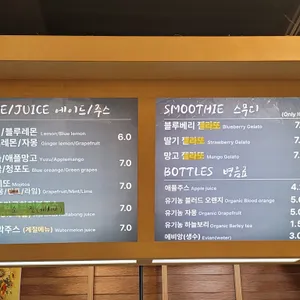 E/JUICE 에이드/주스
/블루레몬 Lemon/Blue lemon 6.0
레몬/자몽 Ginger lemon/Grapefruit 7.0
/애플망고 Yuzu/Applemango 7.0
/청포도 Blue orange/Green grapes
또 Mojitos 7.0
라임) Grapefruit/Mint/Lime
7.0
주스 (계절메뉴) Watermelon juice 7.0
SMOOTHIE 스무디 (Only I
블루베리 젤라또 Blueberry Gelato 7.
딸기 젤라또 Strawberry Gelato 7.
망고 젤라또 Mango Gelato 7.
BOTTLES 병음료
애플주스 Apple juice 4.
유기농 블러드 오렌지 Organic Blood orange 5.
유기농 자몽 Organic Grapefruit 5.
유기농 하늘보리 Organic Barley tea 1.5
에비앙(생수) Evian(water) 3.